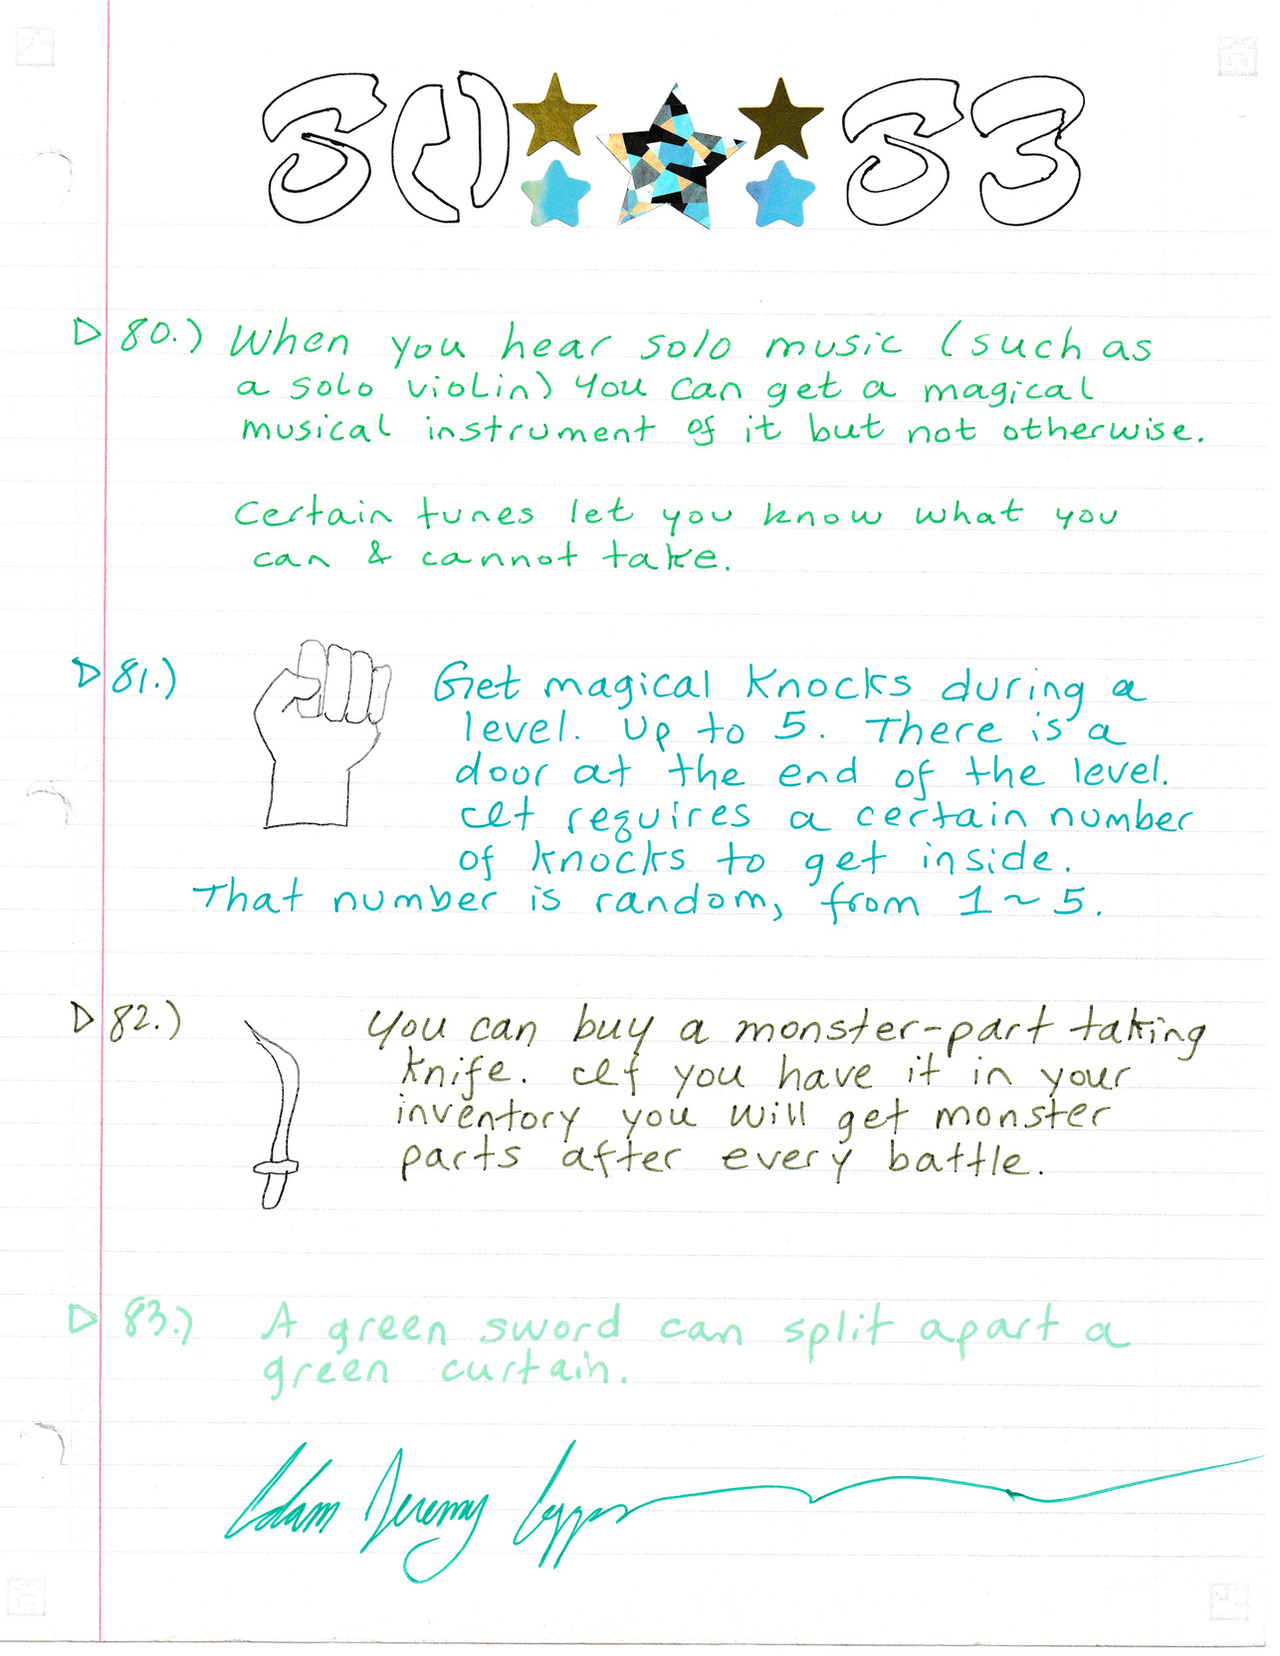 80 83
80.) When you hear solo music (such as
a solo violin) you can get a magical
musical instrument of it but not otherwise.
Certain tunes let you know what you
can & cannot take.
81.) Get magical knocks during a
level. Up to 5. There is a
door at the end of the level.
It requires a certain number
of knocks to get inside.
That number is random, from 1~5.
82.) You can buy a monster-part taking
knife. If you have it in your
inventory you will get monster
parts after every battle.
83.) A green sword can split apart a
green curtain.
Adam Jeremy